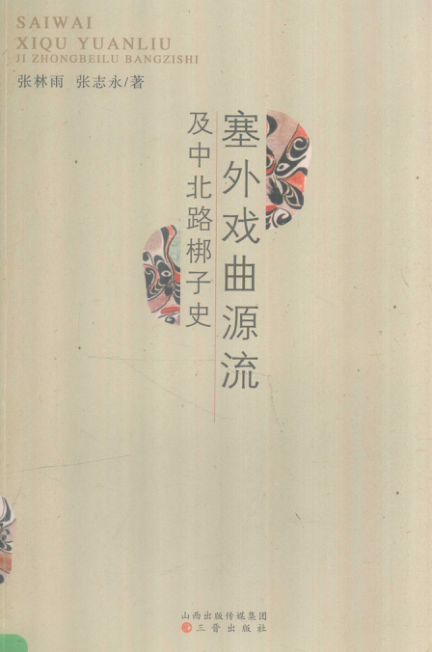 SAIWAI
XIQU YUANLIU
JI ZHONGBEILU BANGZISHI
张林雨 张志永/著
塞外戏曲源流
及中北路梆子史
山西出版传媒集团
三晋出版社